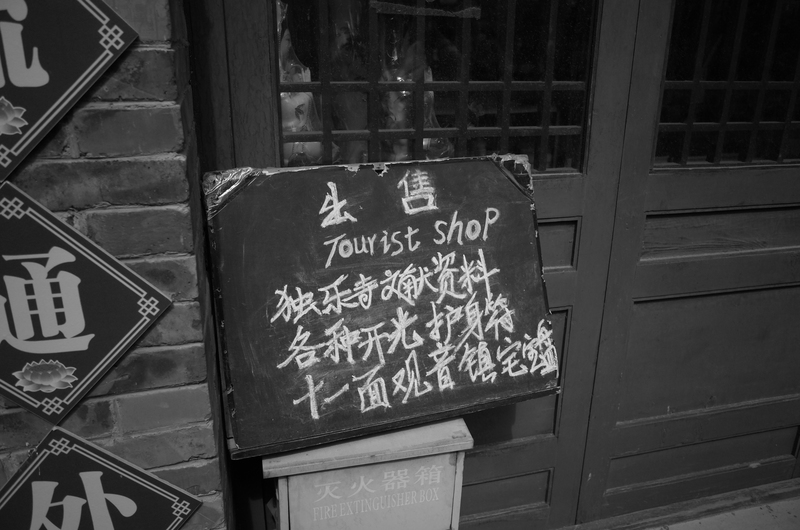 通
处
出售
Tourist Shop
独乐寺文献资料
各种开光护身符
十一面观音镇宅
灭火器箱
FIRE EXTINGUISHER BOX